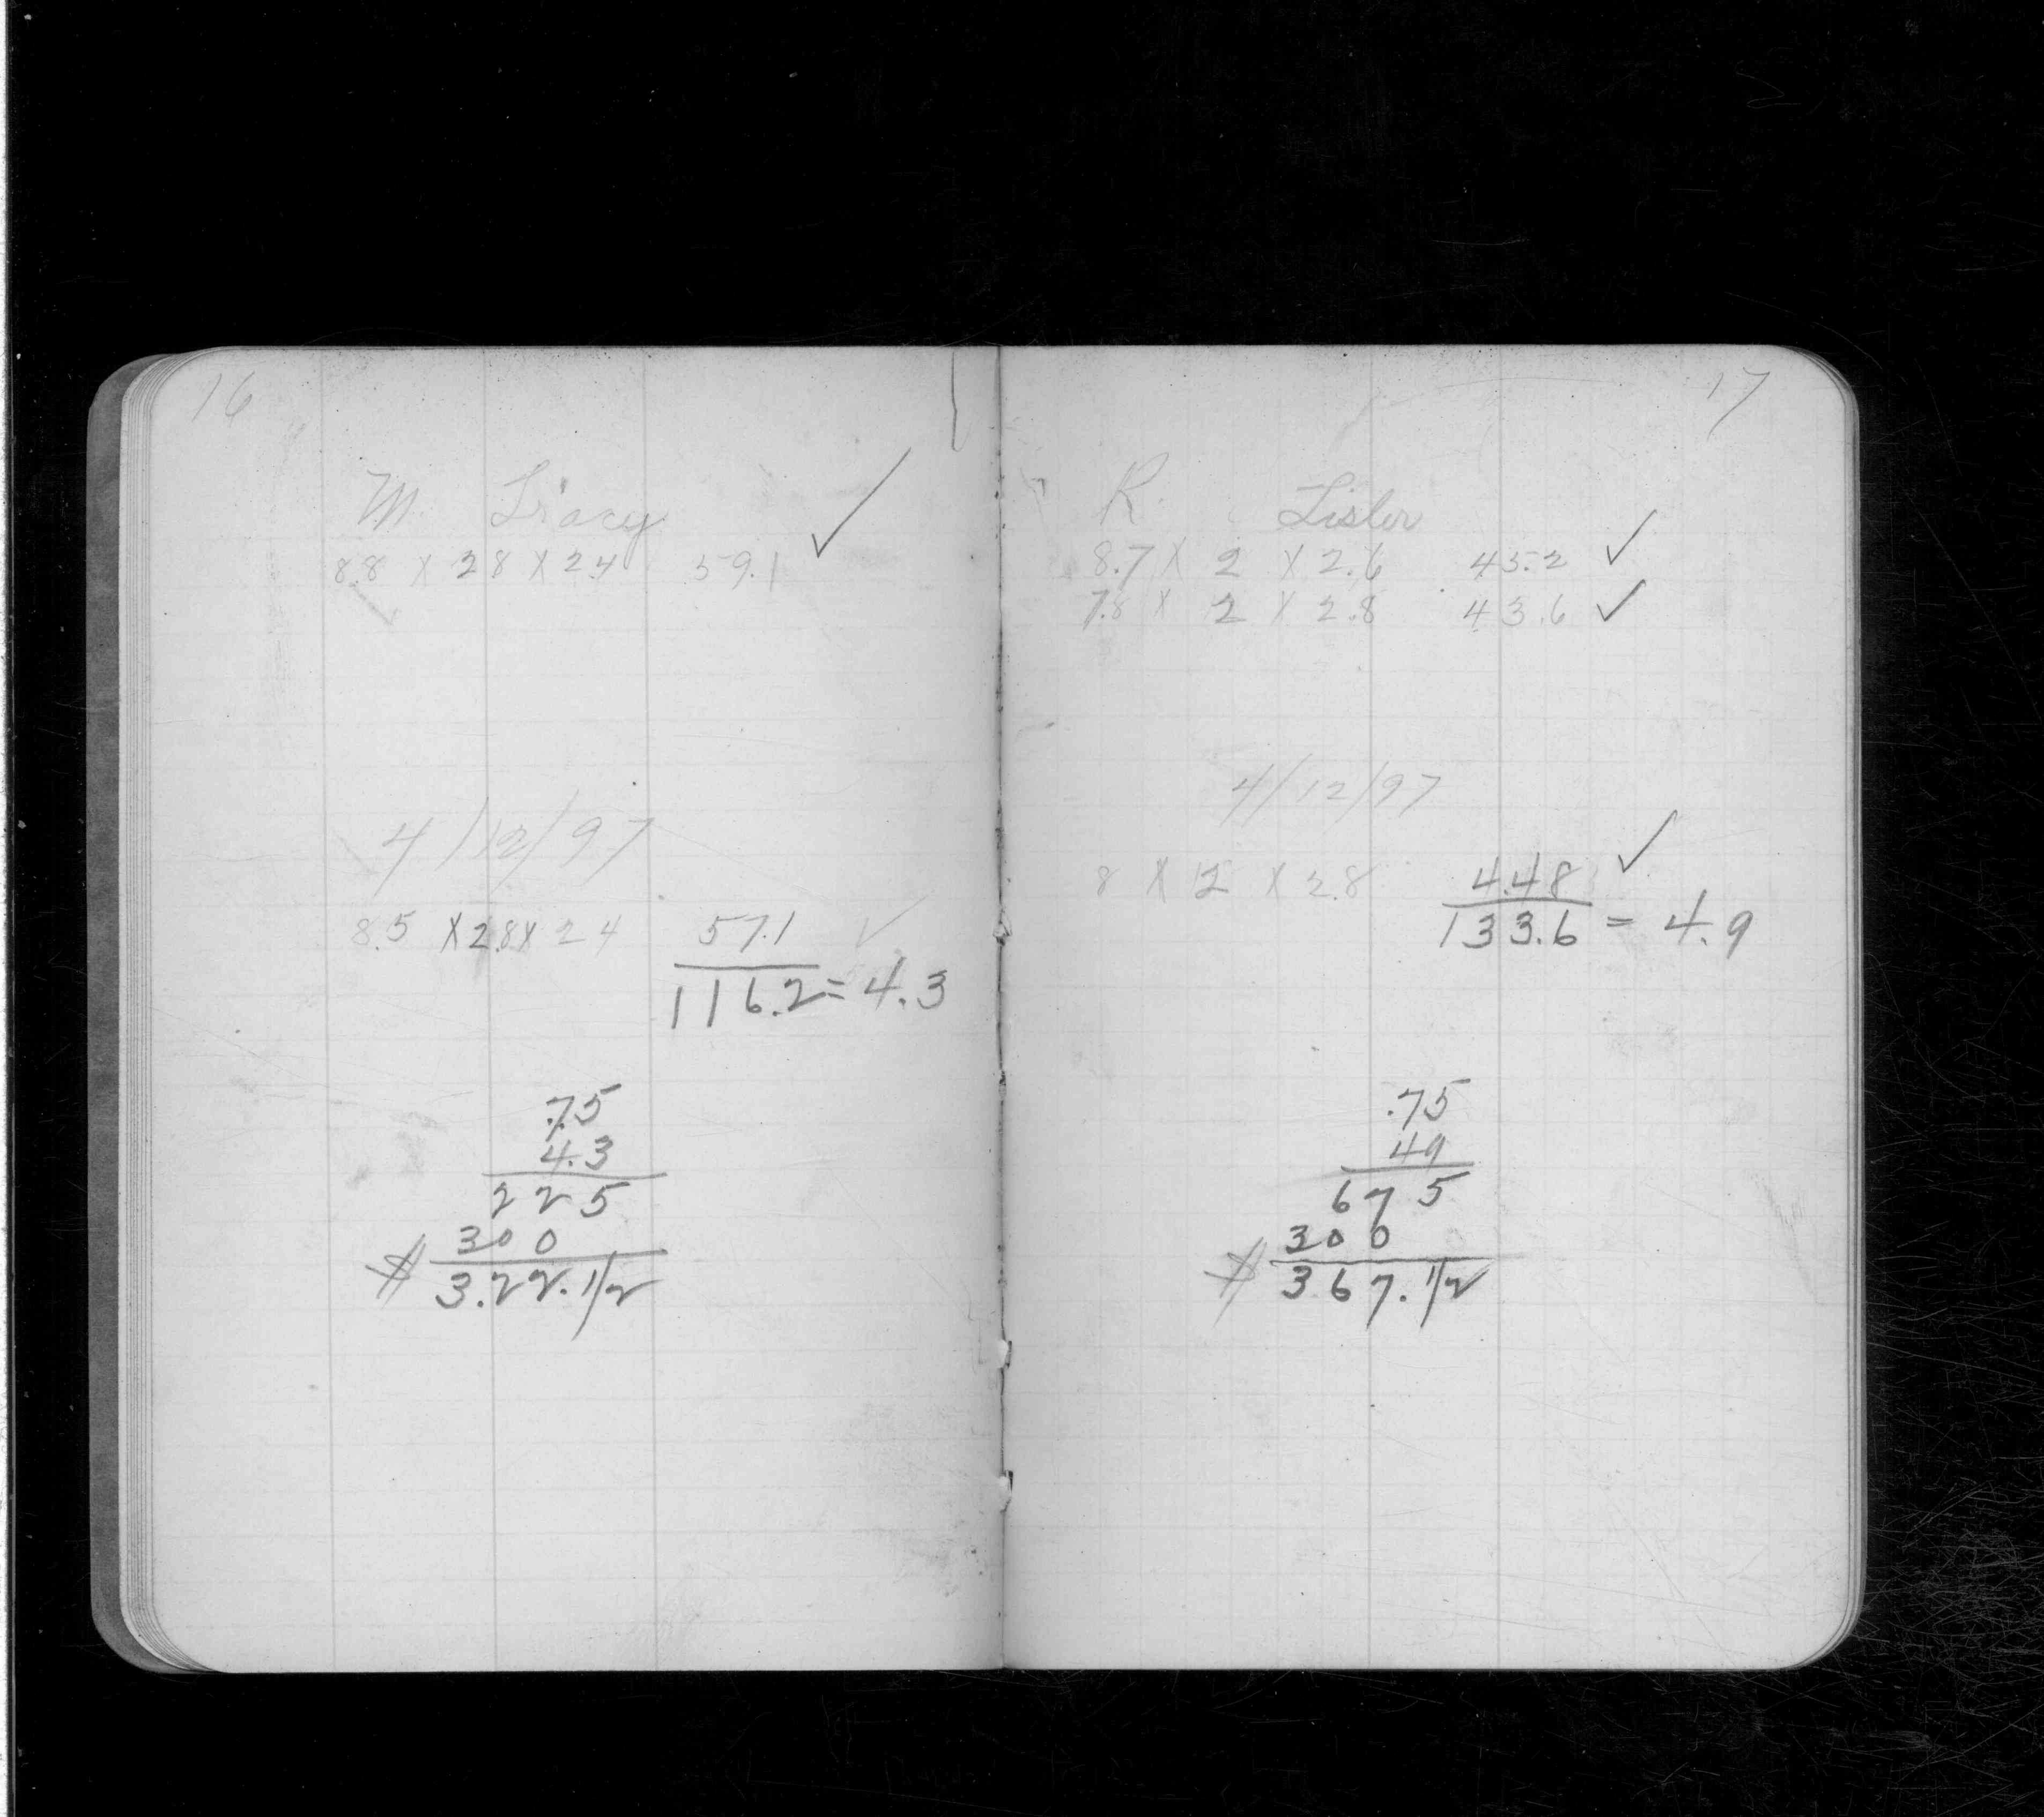 16
M. Tracy ✓
8.8 X 2.8 X 2.4 59.1
4/12/97
8.5 X 2.8 X 2.4 57.1 ✓
116.2 = 4.3
.75
4.3
225
300
$ 3.22.1/2
17
R. Lister
8.7 X 2 X 2.6 45.2 ✓
7.8 X 2 X 2.8 43.6 ✓
4/12/97
8 X 2 X 2.8 4.48 ✓
133.6 = 4.9
.75
49
675
300
$ 367.1/2